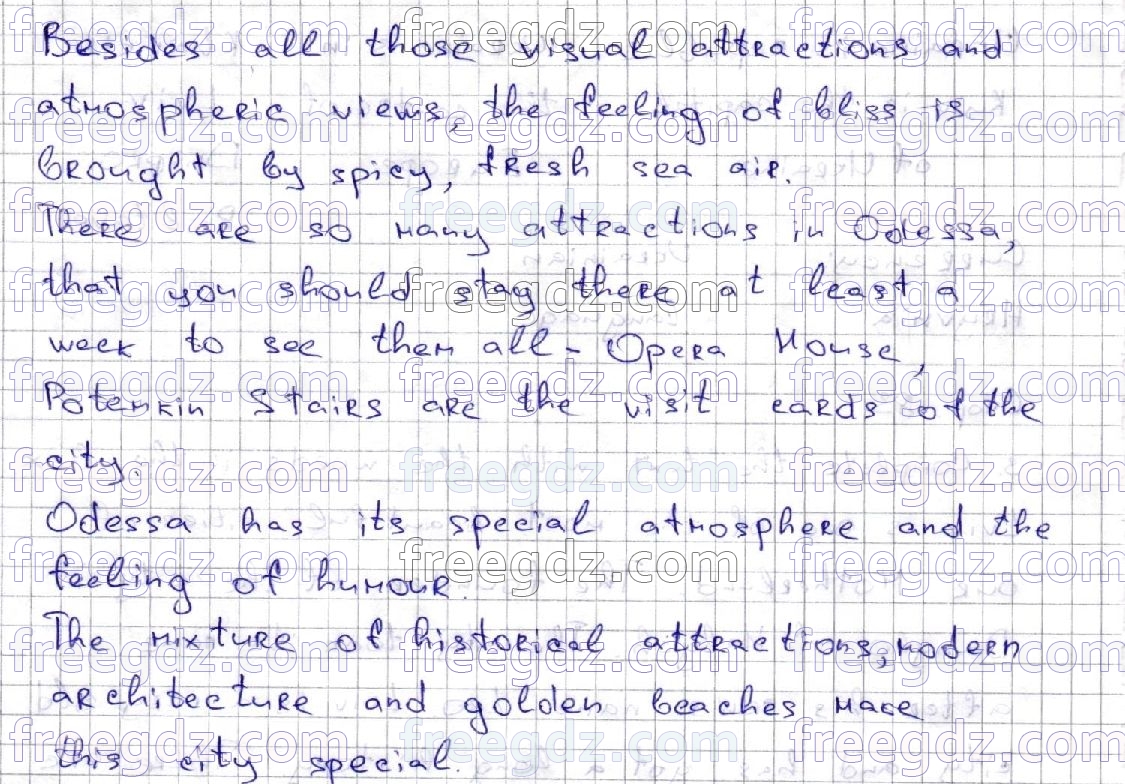 Besides all those visual attractions and
atmospheric views, the feeling of bliss is
brought by spicy, fresh sea air.
There are so many attractions in Odessa,
that you should stay there at least a
week to see them all - Opera House,
Potemkin Stairs are the visit cards of the
city.
Odessa has its special atmosphere and the
feeling of humour.
The mixture of historical attractions, modern
architecture and golden beaches mace
this city special.
freegdz.com